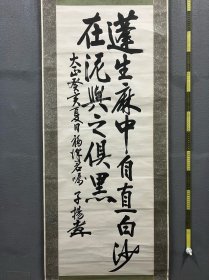 蓬生麻中自直白沙
在泥與之俱黑
大正癸亥夏日 君嘱 子楊